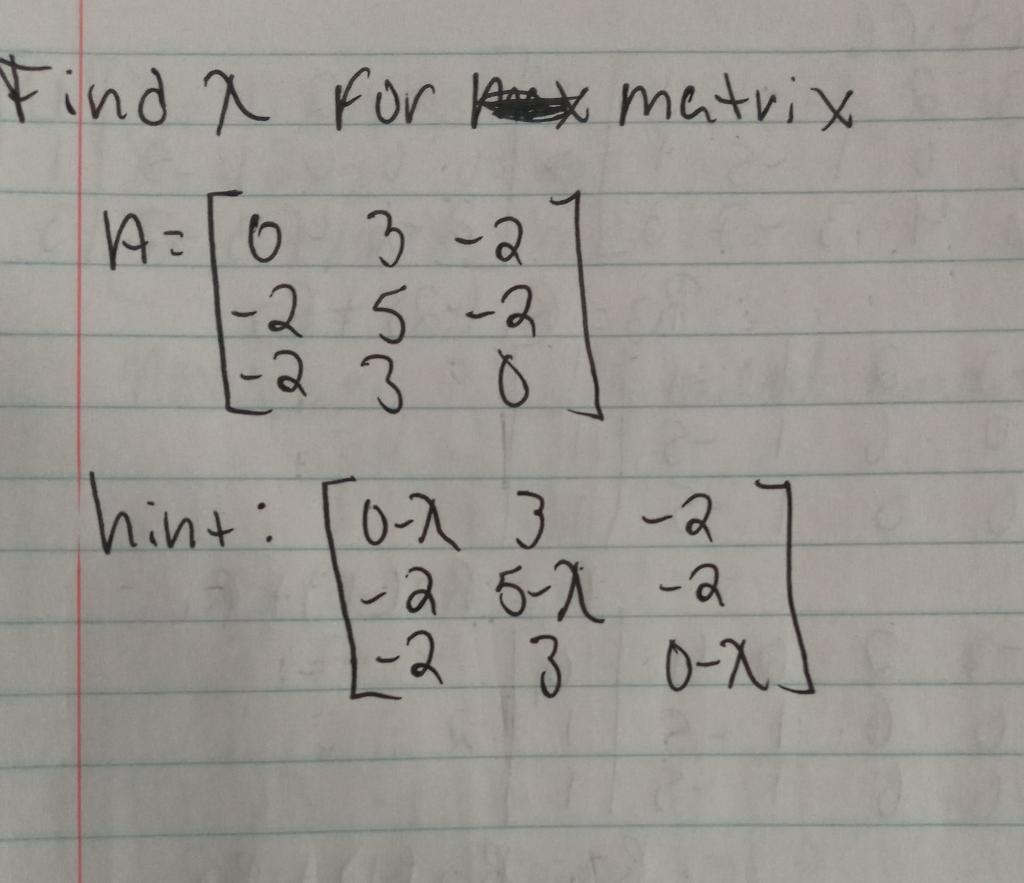 Find λ for matrix
A = [0 3 -2
-2 5 -2
-2 3 0]
hint: [0-λ 3 -2
-2 5-λ -2
-2 3 0-λ]